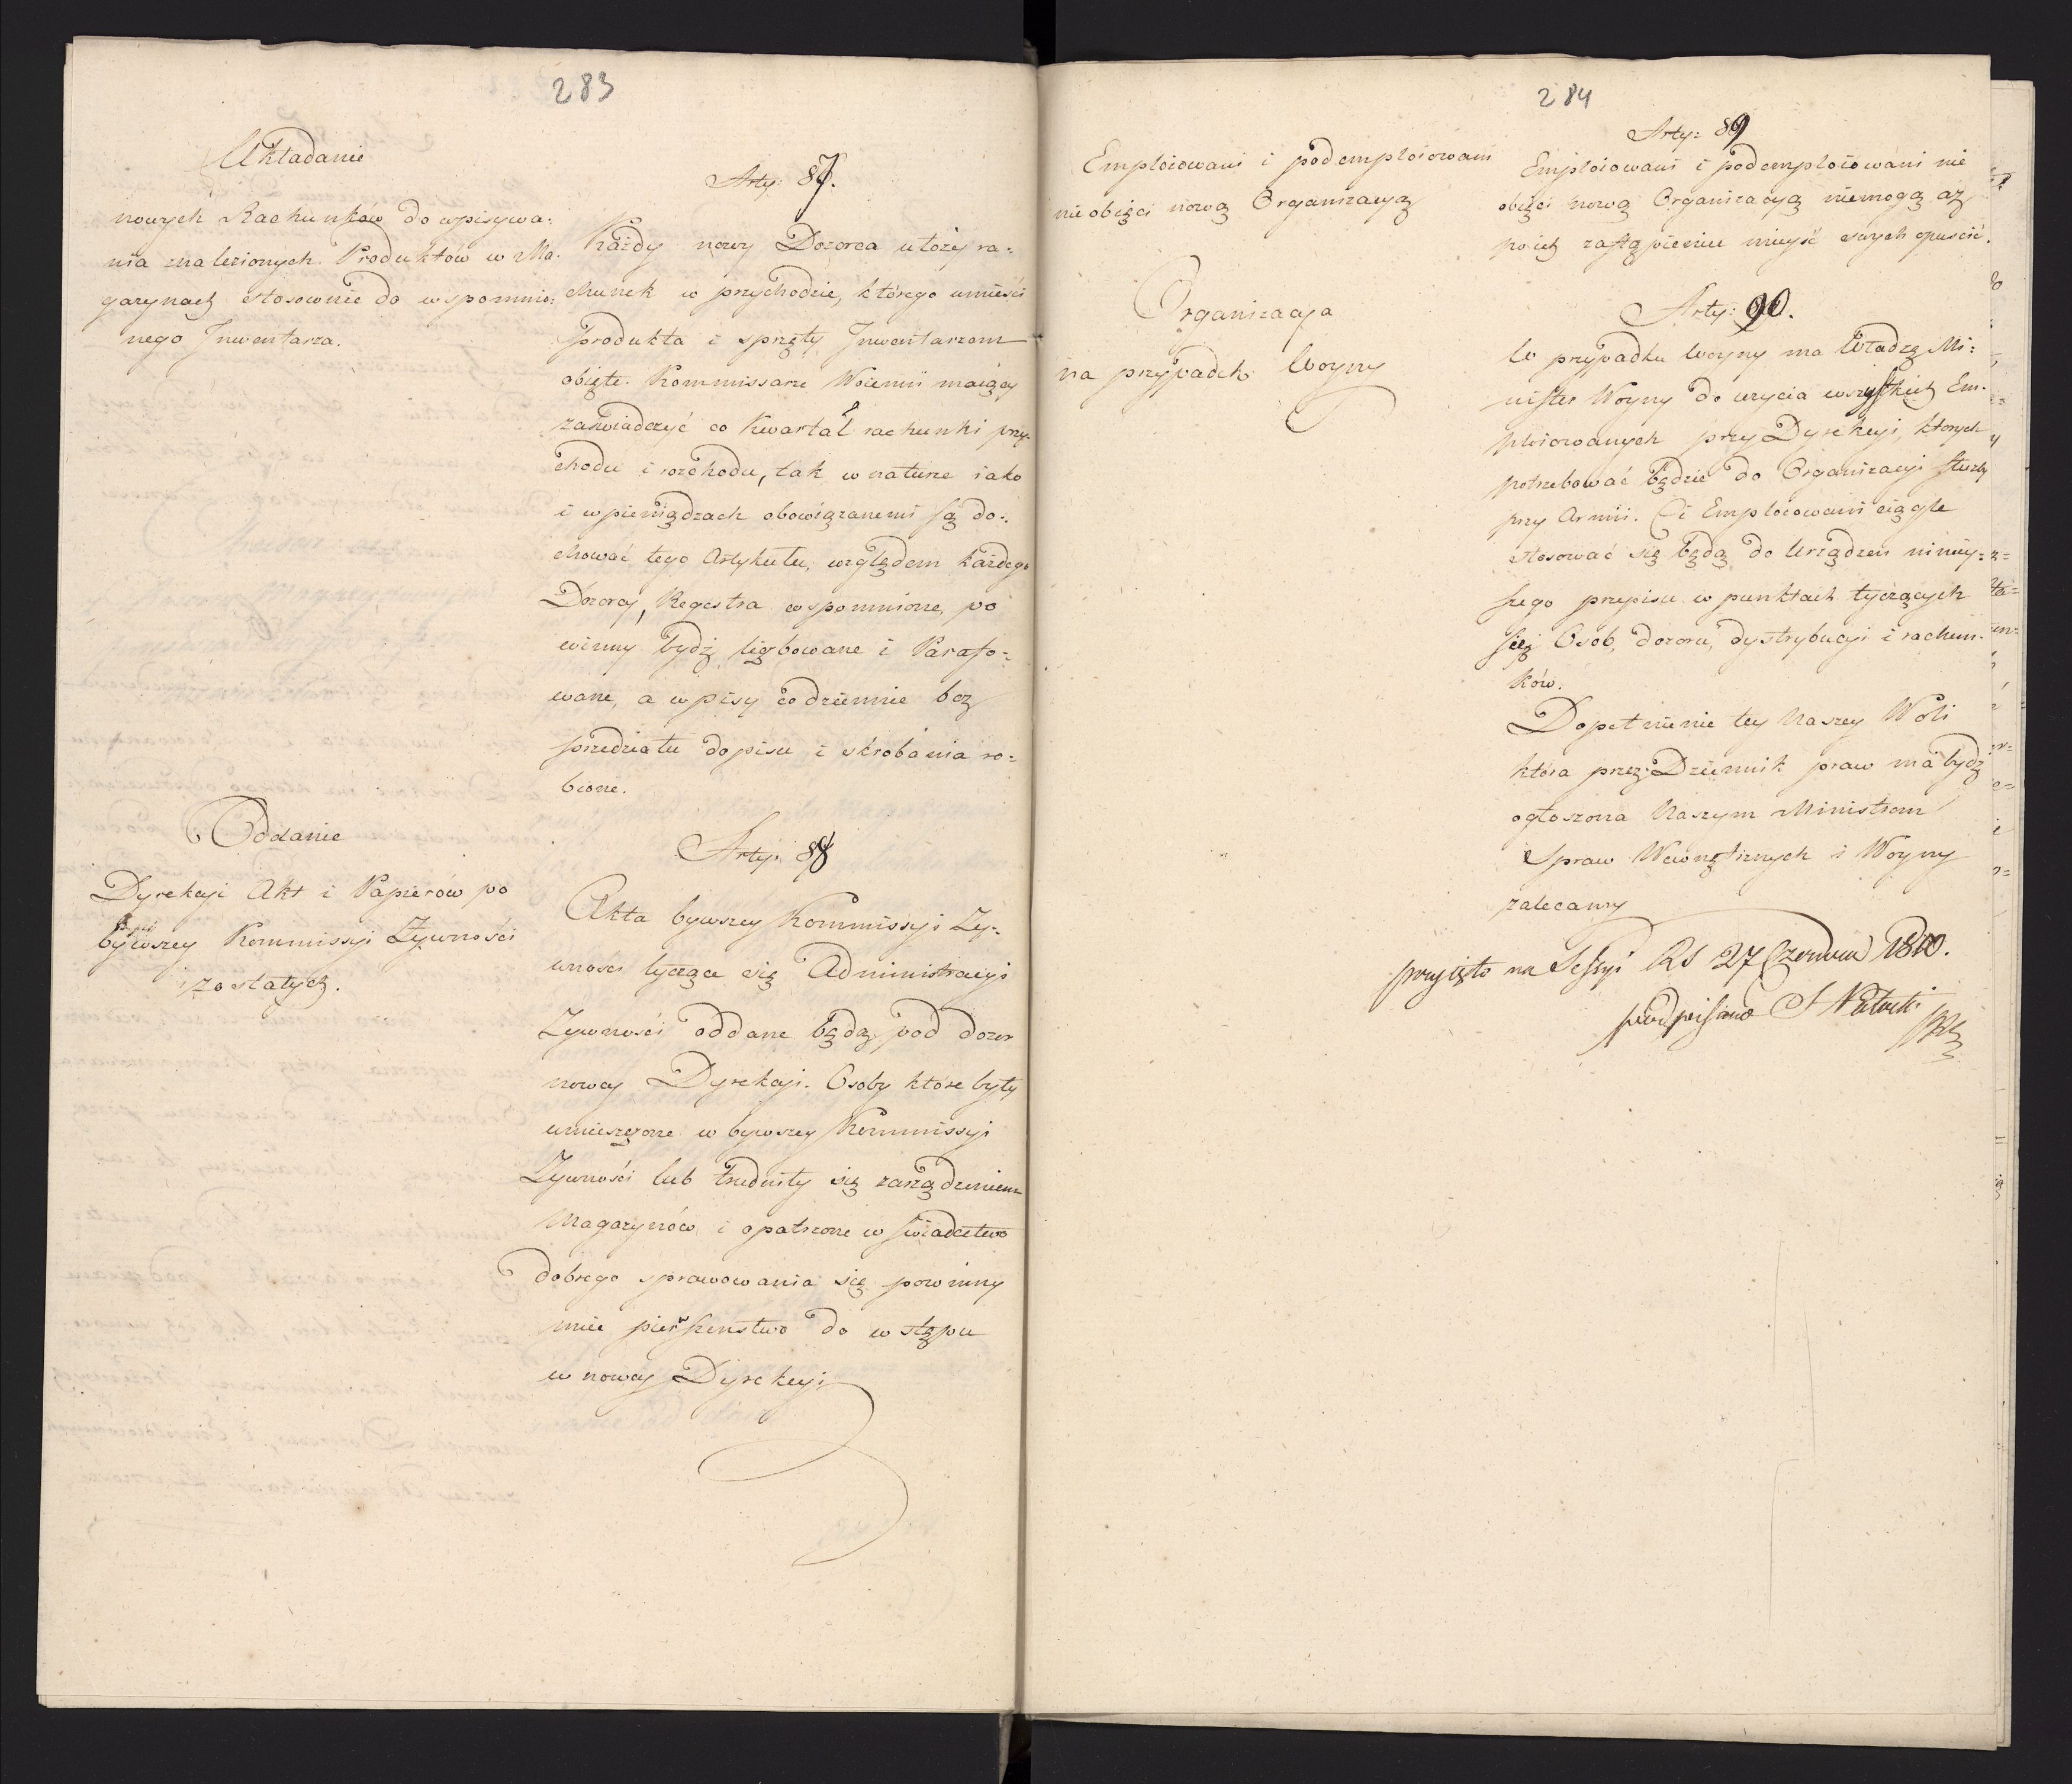 283
Układanie
nowych Rachunków do wpisywa:
nia znalezionych Produktów w Ma:
gazynach stosownie do wspomnio:
nego Inwentarza.
Arty: 87.
Każdy nowy Dozorca ułoży ra:
chunek w przychodzie, którego umieści
produkta i sprzęty Inwentarzem
obięte. Kommissarze Woienni maiący
zaświadczyć co Kwartał rachunki przy:
chodu i rozchodu, tak w naturze iako
i w pieniądzach obowiązanemi są do:
chować tego Artykułu, względem każdego
Dozorcy, Regestra wspomnione, po
winny bydź liczbowane i Parafo:
wane, a wpisy codziennie bez
przedziału dopisu i skrobania ro:
bione.
Oddanie
Dyrekcyi Akt i Papierów po
byłey
bywszey Kommissyi Żywności
zostałych.
Arty: 88
Akta bywszey Kommissyi Ży:
wności tyczące się Administracyi
Żywności oddane będą pod dozór
nowey Dyrekcyi. Osoby które były
umieszczone w bywszey Kommissyi
Żywności lub trudniły się zarządzeniem
Magazynów i opatrzone w świadectwo
dobrego sprawowania się powinny
mieć pierwszeństwo do wstępu
w nowey Dyrekcyi
284
Emploiowani i podemploiowani
nie obięci nową Organizacyą
Arty: 89
Emploiowani i podemploiowani nie
obięci nową Organizacyą niemogą aż
po ich zastąpieniu mieysć swych opuścić.
Organizacya
na przypadek Woyny
Arty: 90.
W przypadku Woyny ma Władzę Mi:
nister Woyny do użycia wszystkich Em:
ploiowanych przy Dyrekcyi, których
potrzebować będzie do Organizacyi służby
przy Armii. Ci Emploiowani ciągle
stosować się będą do Urządzeń ninieу:
szego przepisu w punktach tyczących
się Osób, dozoru, dystrybucyi i rachun:
ków.
Dopełnienie tey Naszey Woli
która przez Dziennik praw ma bydź
ogłoszona Naszym Ministrom
Spraw Wewnętrznych i Woyny
zalecamy
przyięto na Sessyi RS 27 Czerwca 1810.
podpisano S Potocki